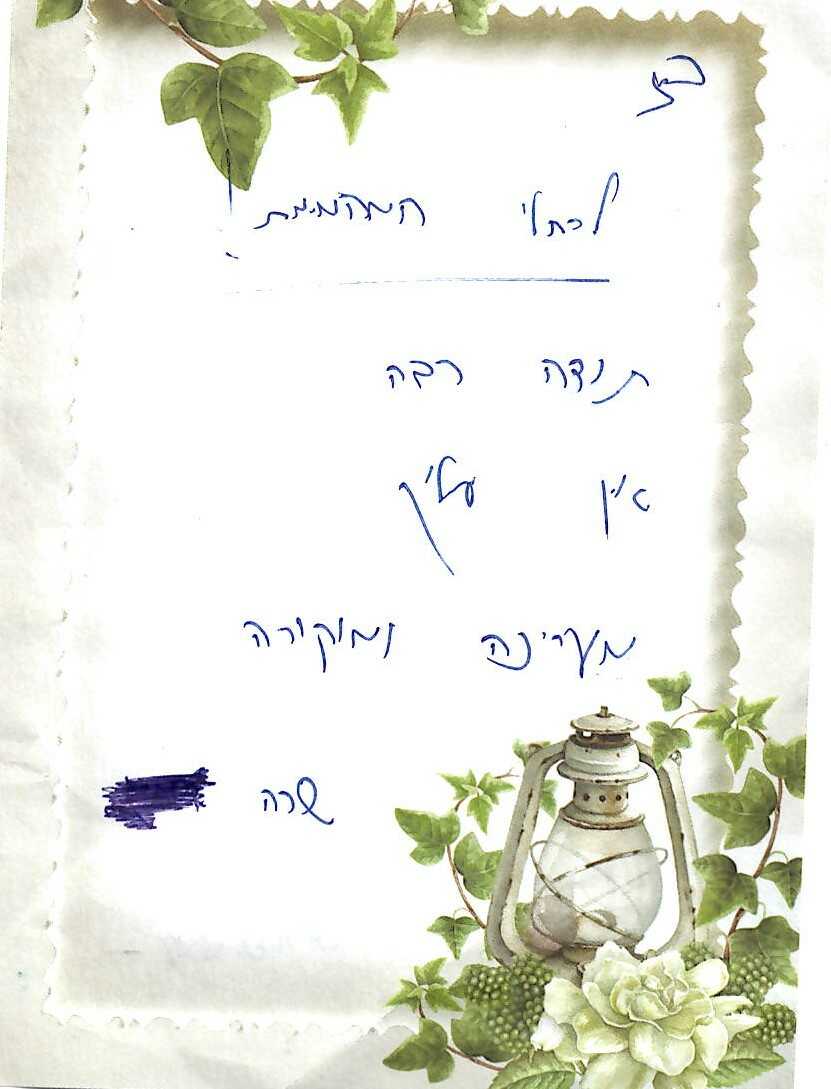 לרחלי המהממת!
תודה רבה
אין עליך
מעריכה ומוקירה
שרה